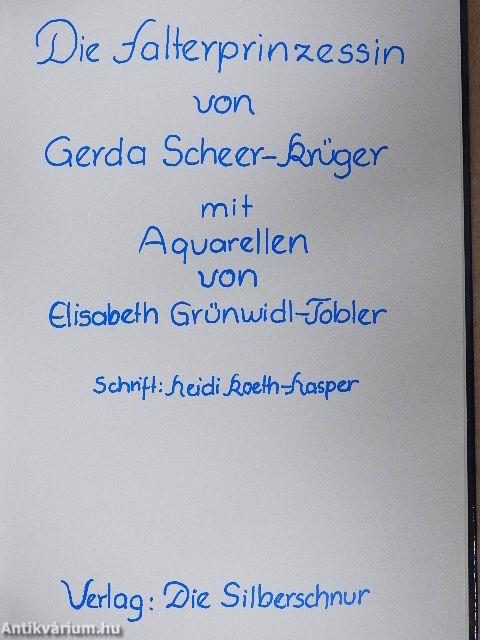 Die Falterprinzessin
von
Gerda Scheer-Krüger
mit
Aquarellen
von
Elisabeth Grünwidl-Tobler
Schrift: Heidi Koeth-Kasper
Verlag: Die Silberschnur
Antikvárium.hu